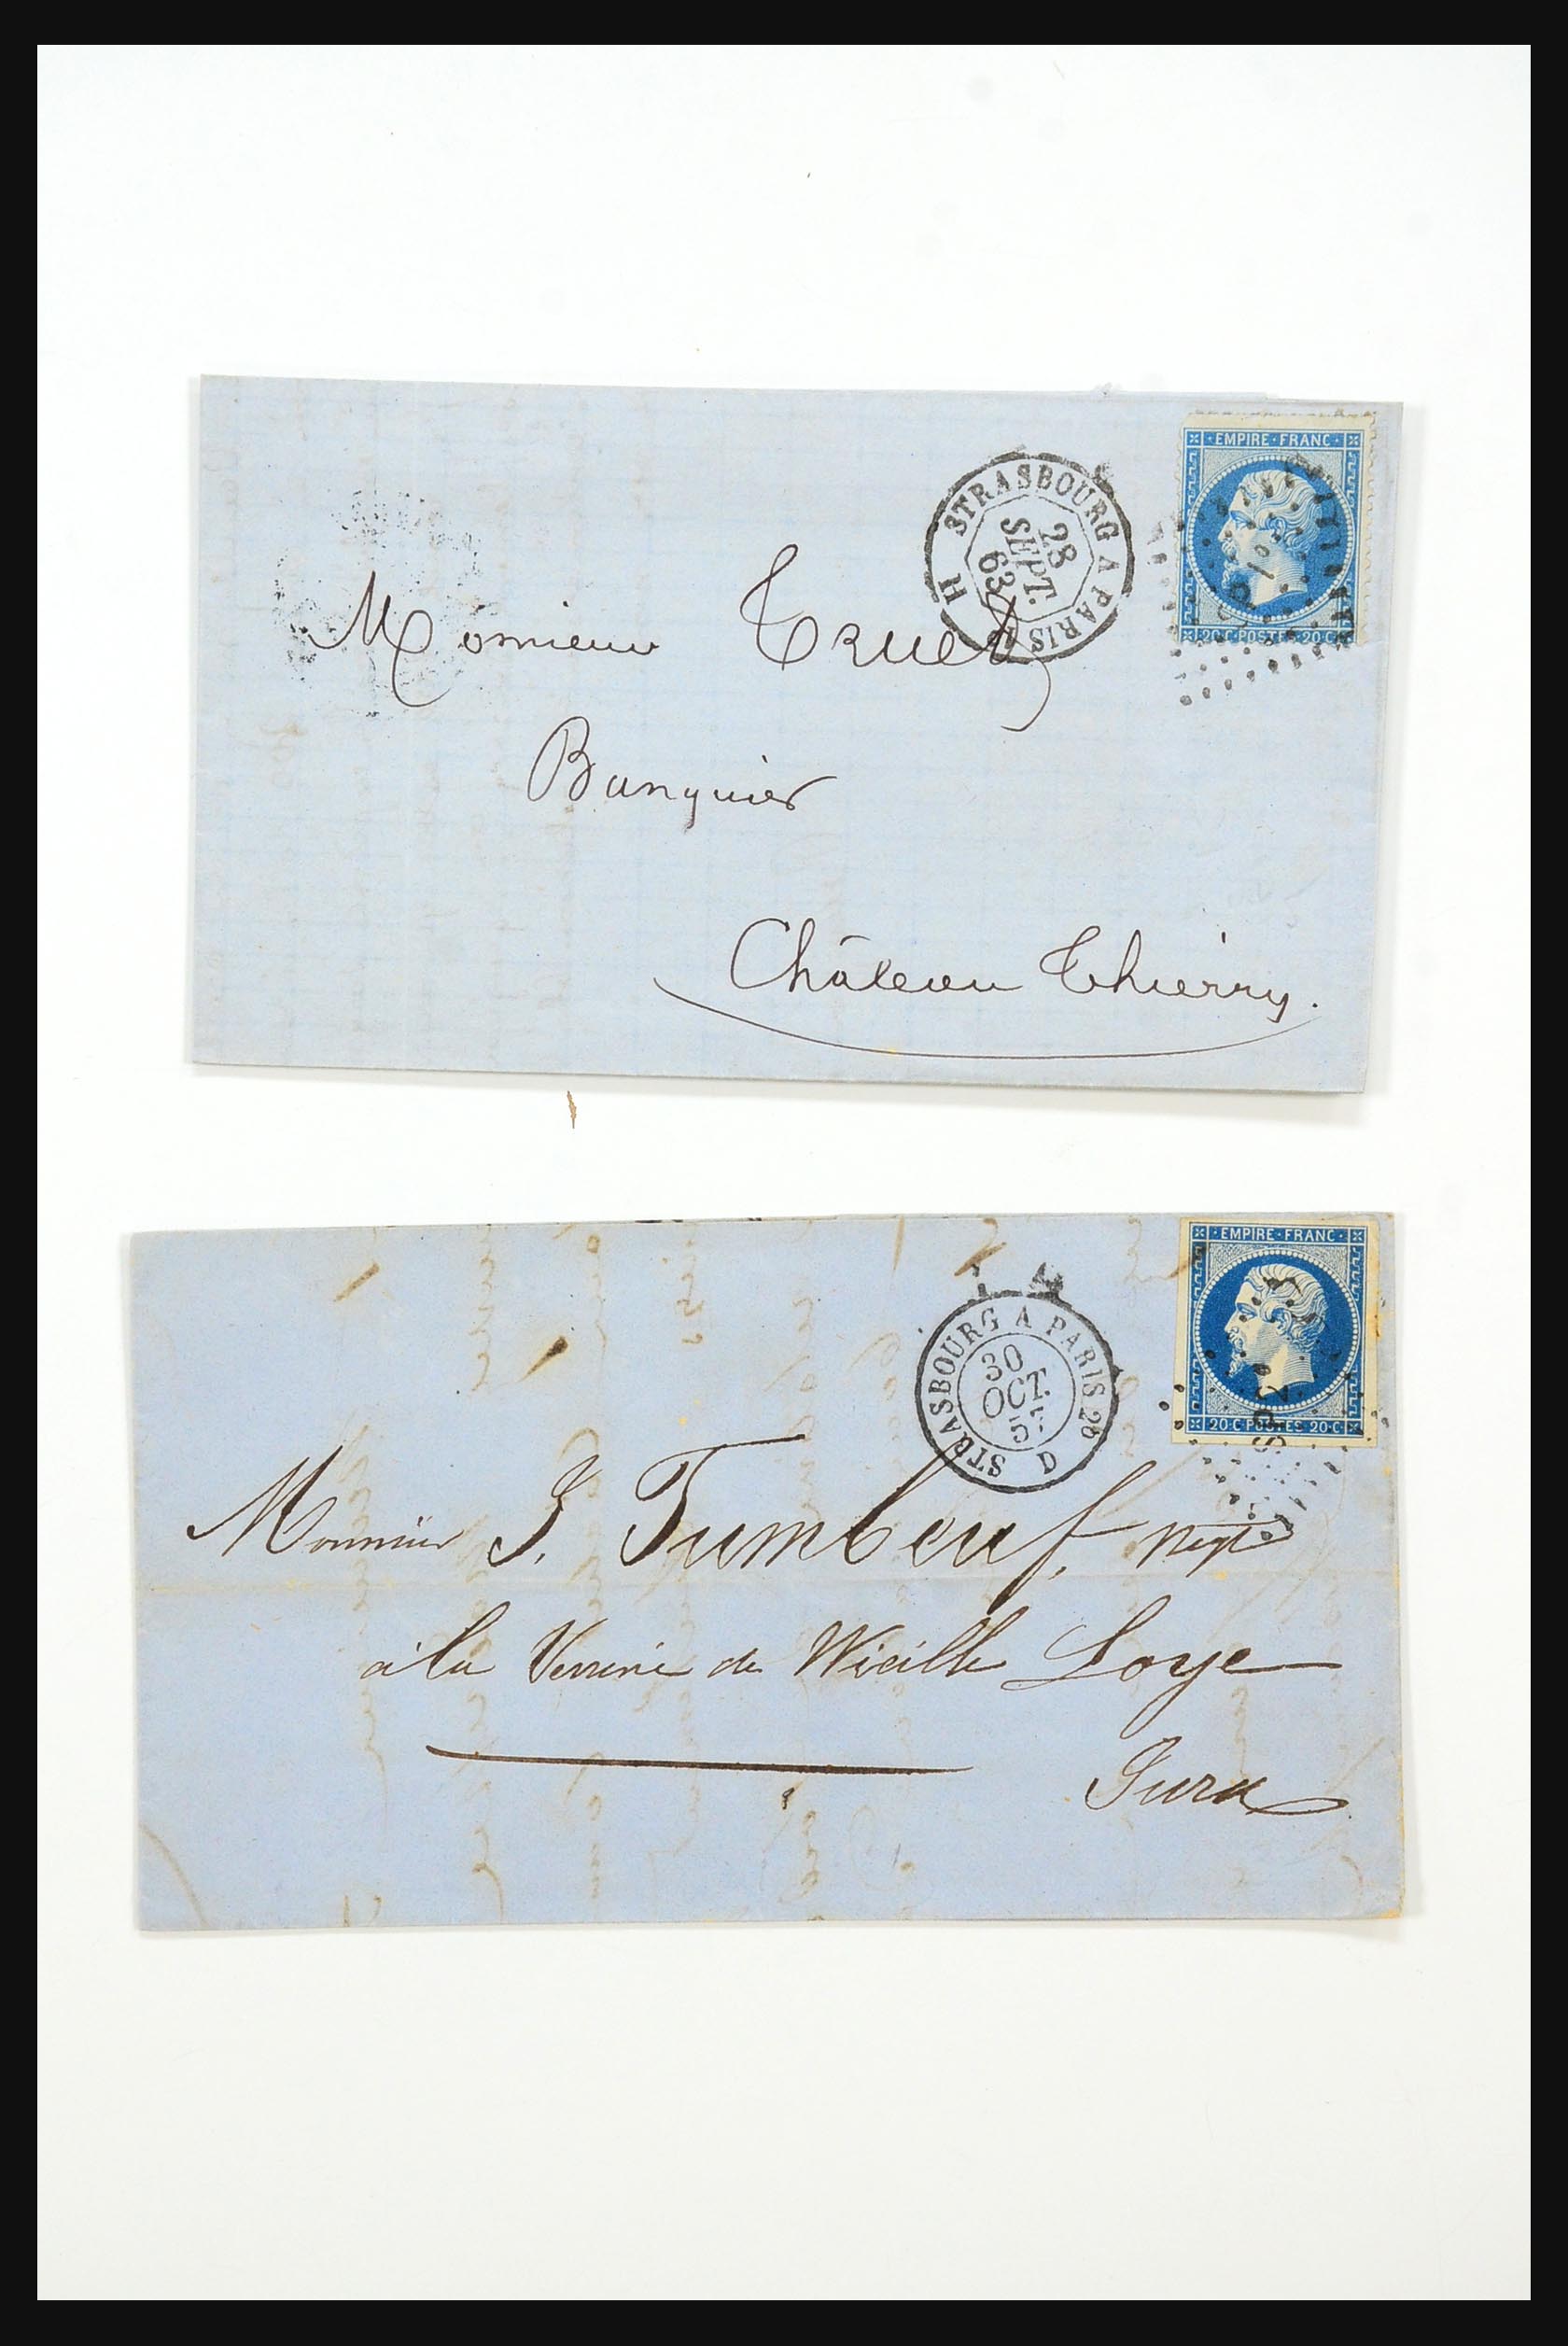 EMPIRE·FRANC
STRASBOURG A PARIS
28
SEPT.
63
H
20·C·POSTES·20·C
Monsieur Truet
Banquier
Château Thierry.
EMPIRE·FRANC
STRASBOURG A PARIS 2º
30
OCT.
57
D
20·C·POSTES·20·C
Monsieur J. Tumbeuf, Négt
à la Verrerie de Vieille Loye
Jura